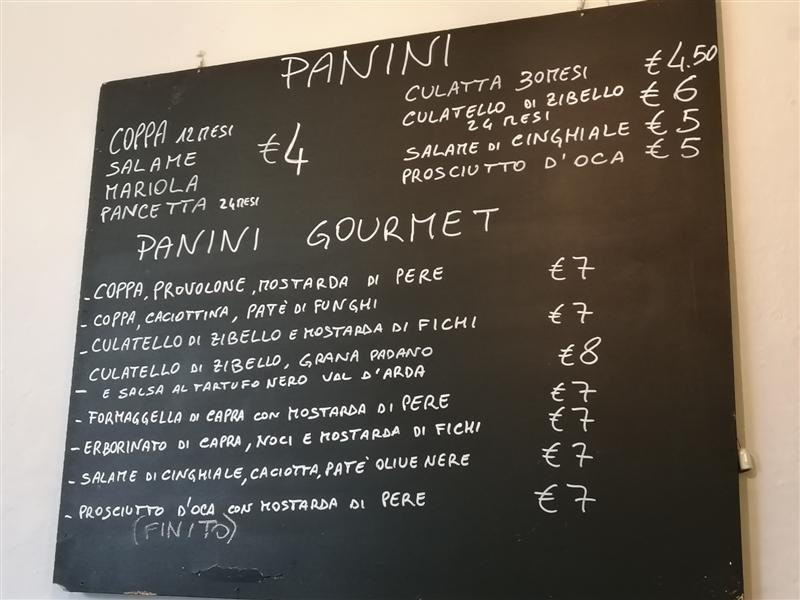 PANINI
COPPA 12 MESI
SALAME
MARIOLA
PANCETTA 24 MESI
€4
CULATTA 30 MESI €4.50
CULATELLO DI ZIBELLO €6
24 MESI
SALAME DI CINGHIALE €5
PROSCIUTTO D'OCA €5
PANINI GOURMET
- COPPA, PROVOLONE, MOSTARDA DI PERE €7
- COPPA, CACIOTTINA, PATÈ DI FUNGHI €7
- CULATELLO DI ZIBELLO E MOSTARDA DI FICHI
CULATELLO DI ZIBELLO, GRANA PADANO €8
- E SALSA AL TARTUFO NERO VAL D'ARDA
- FORMAGGELLA DI CAPRA CON MOSTARDA DI PERE €7
- ERBORINATO DI CAPRA, NOCI E MOSTARDA DI FICHI €7
- SALAME DI CINGHIALE, CACIOTTA, PATÈ OLIVE NERE €7
- PROSCIUTTO D'OCA CON MOSTARDA DI PERE €7
(FINITO)